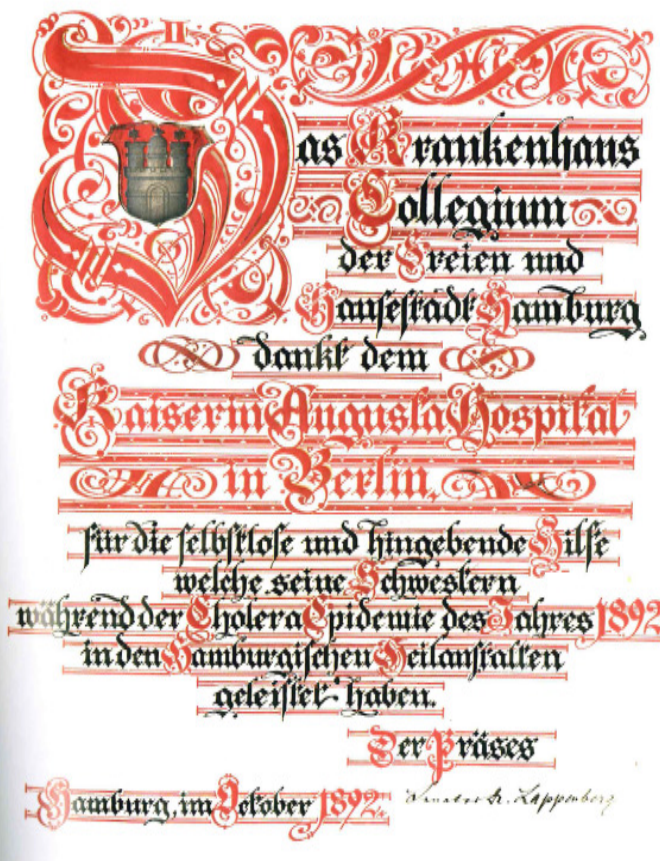 Das Krankenhaus
Collegium
der Freien und
Hansestadt Hamburg
dankt dem
Kaiserin Augusta Hospital
in Berlin,
für die selbstlose und hingebende Hilfe
welche seine Schwestern
während der Cholera Epidemie des Jahres 1892
in den Hamburgischen Heilanstalten
geleistet haben.
Der Präses
Hamburg, im October 1892.
Senator Dr. Lappenberg